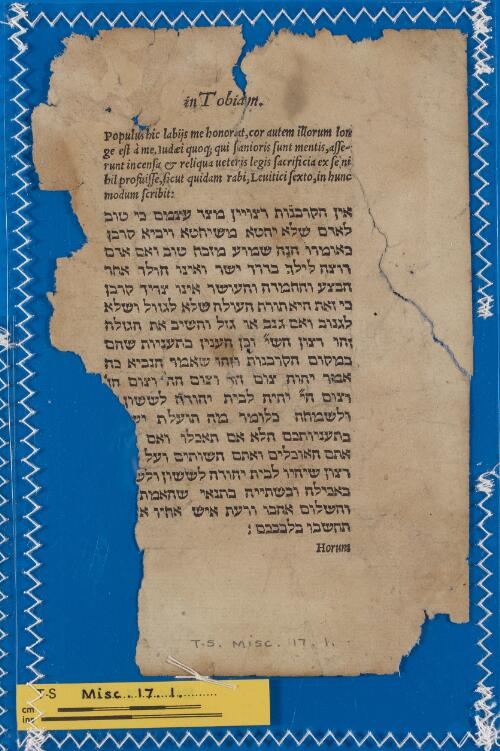 in Tobiam.
Populus hic labijs me honorat, cor autem illorum lon
ge est à me, Iudæi quoq; qui sanioris sunt mentis, asse-
runt incensa, & reliqua ueteris legis sacrificia ex se ni
hil profuisse, sicut quidam rabi, Leuitici sexto, in hunc
modum scribit:
אין הקרבנות רצויין מצד עצמם כי טוב
לאדם שלא יחטא משיחטא ויביא קרבן
כאומרו הנה שמוע מזבח טוב ואם אדם
רוצה לילך בדרך ישר ואינו הולך אחר
הבצע והחמדה והעושר אינו צריך קרבן
כי זאת היא תורת העולה שלא לגזול ושלא
לגנוב ואם גנב או גזל והשיב את הגזלה
זהו רצון השי״ וכן הענין בתעניות שהם
במקום הקרבנות וזהו שאמר הנביא כה
אמר יהוה צום הד׳ וצום הה׳ וצום הז׳
וצום הי׳ יהיה לבית יהודה לששון
ולשמחה כלומר מה תועלת יש
בתעניותכם הלא אם תאכלו ואם
אתם האוכלים ואתם השותים ועל
רצון שיהיו לבית יהודה לששון
באכילה ובשתייה בתנאי שהאמת
והשלום אהבו ורעת איש אחיו א
תחשבו בלבבכם :
Horum
T-S. Misc. 17. 1.
T-S Misc. 17. 1.
cm
ins